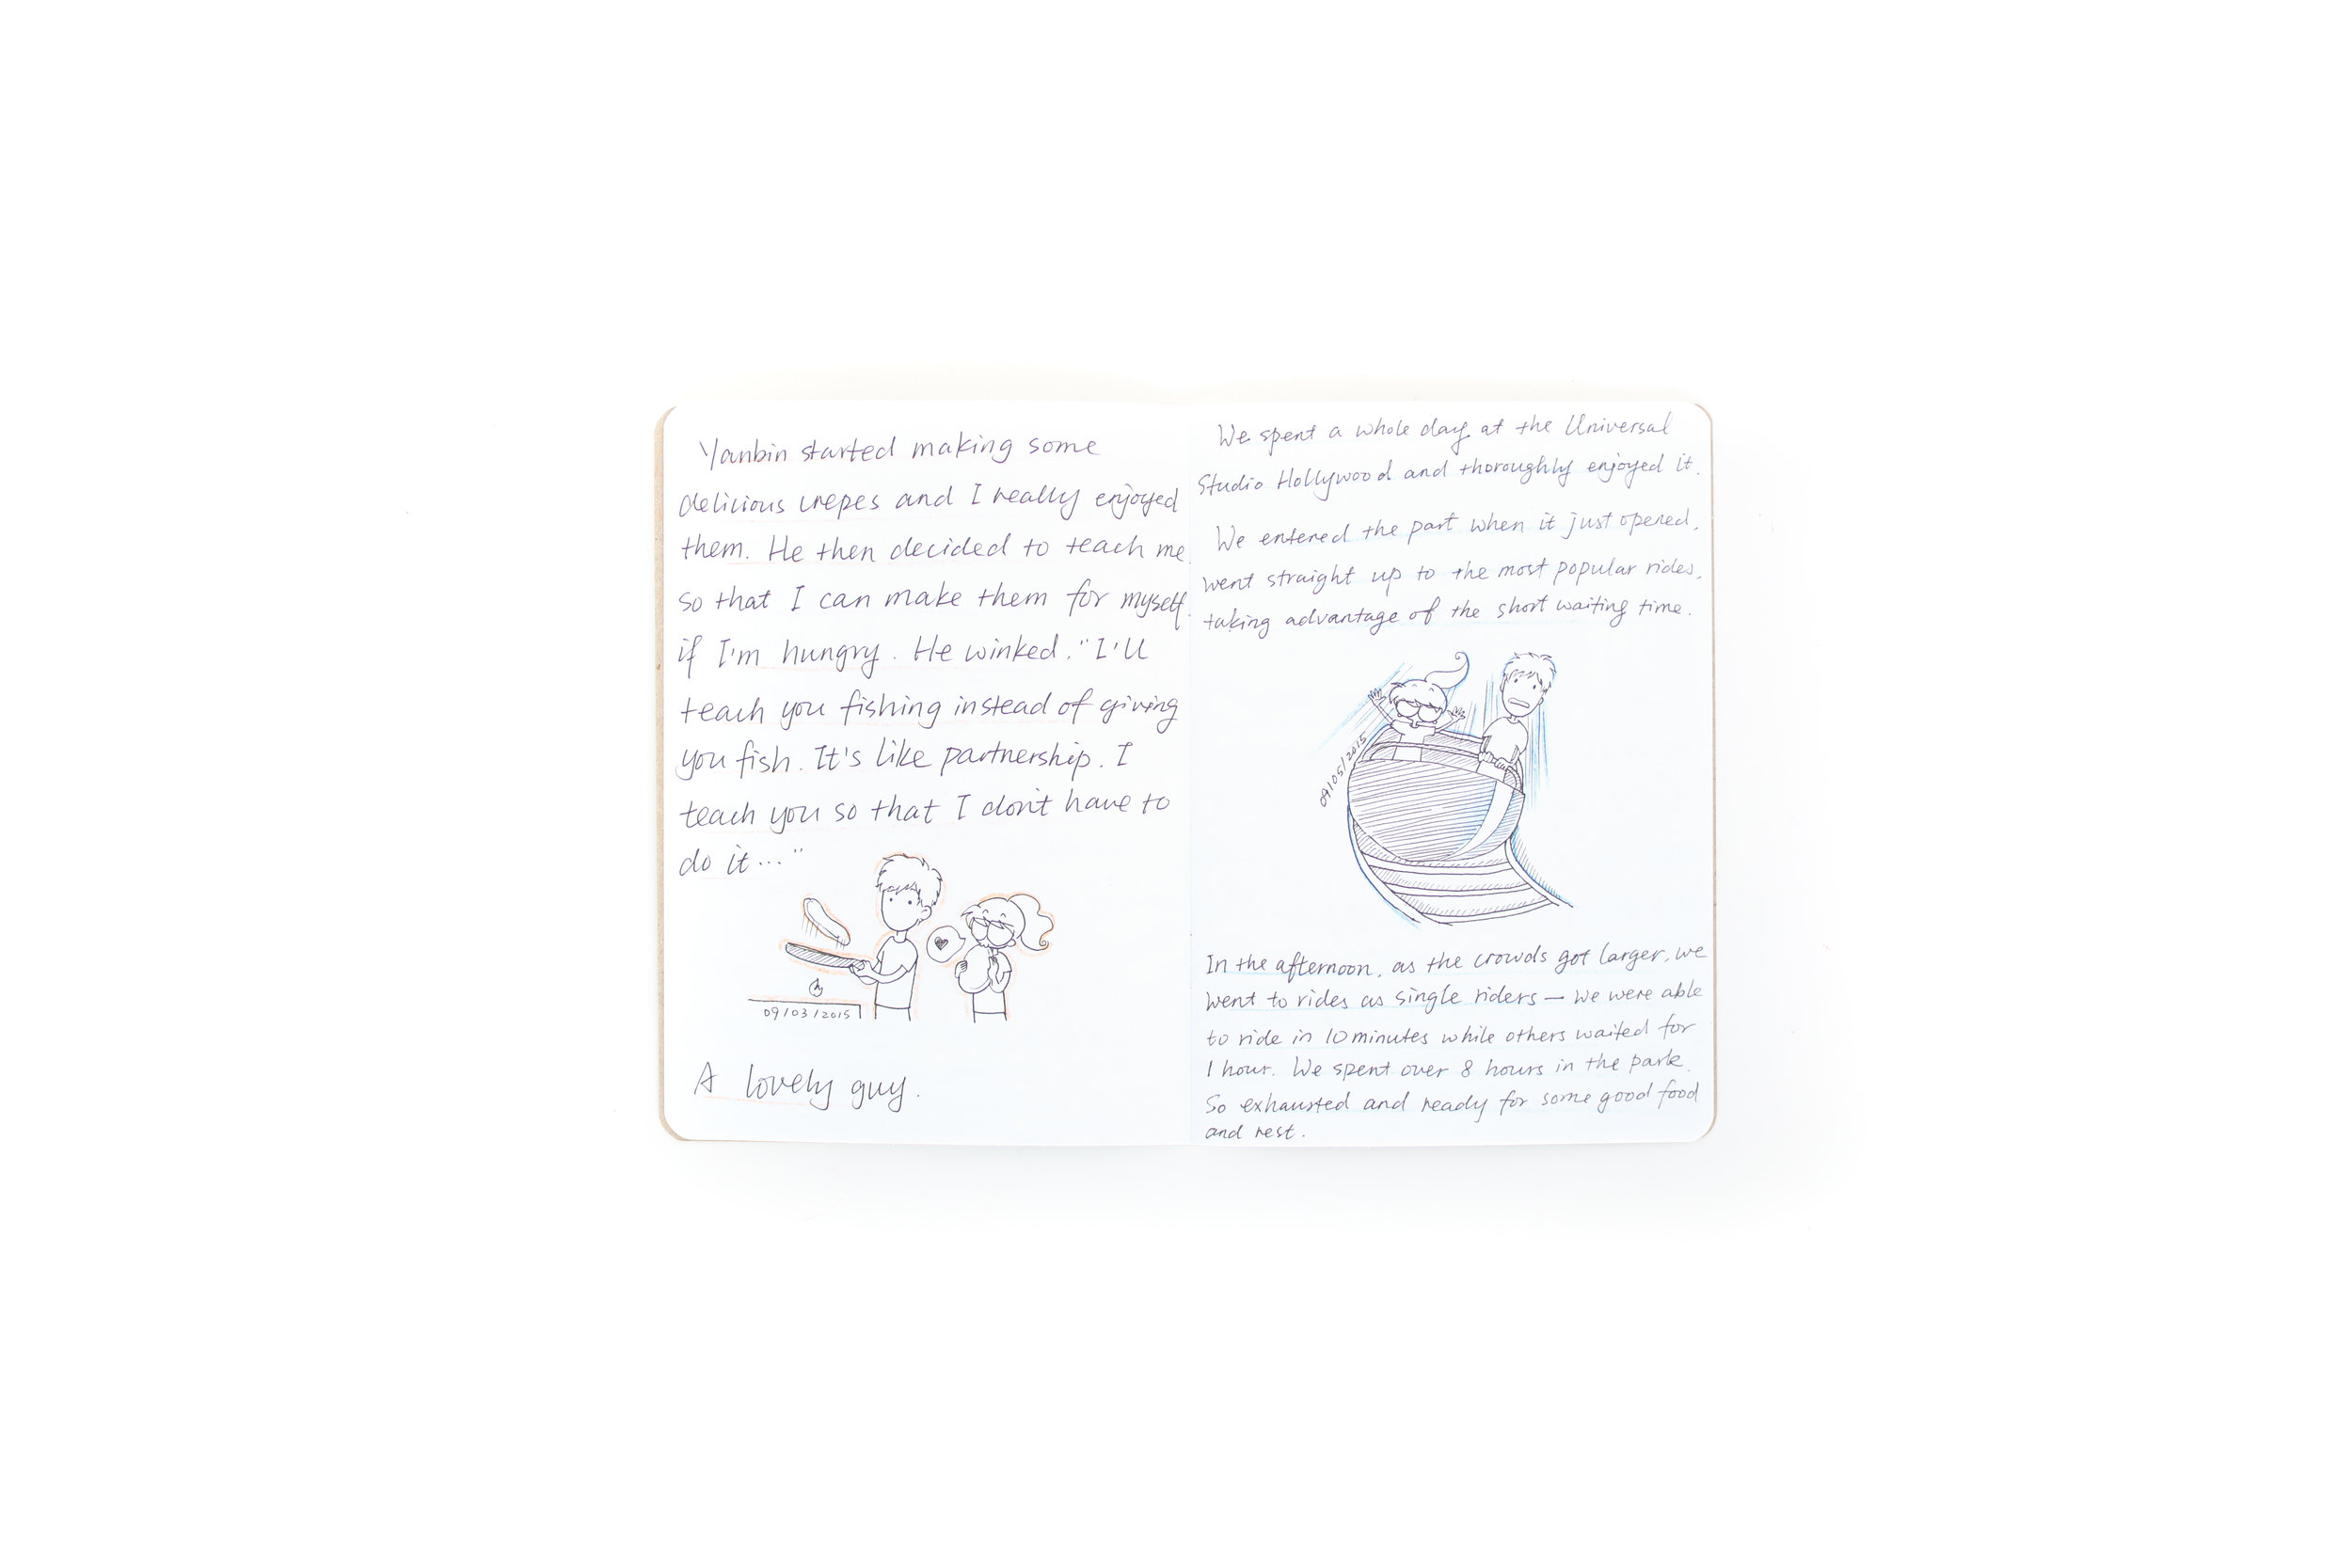 Yanbin started making some
delicious crepes and I really enjoyed
them. He then decided to teach me
so that I can make them for myself
if I'm hungry. He winked. "I'll
teach you fishing instead of giving
you fish. It's like partnership. I
teach you so that I don't have to
do it..."
09/03/2015
A lovely guy.
We spent a whole day at the Universal
Studio Hollywood and thoroughly enjoyed it.
We entered the part when it just opened,
went straight up to the most popular rides,
taking advantage of the short waiting time.
09/05/2015
In the afternoon, as the crowds got larger, we
went to rides as single riders — we were able
to ride in 10 minutes while others waited for
1 hour. We spent over 8 hours in the park.
So exhausted and ready for some good food
and rest.